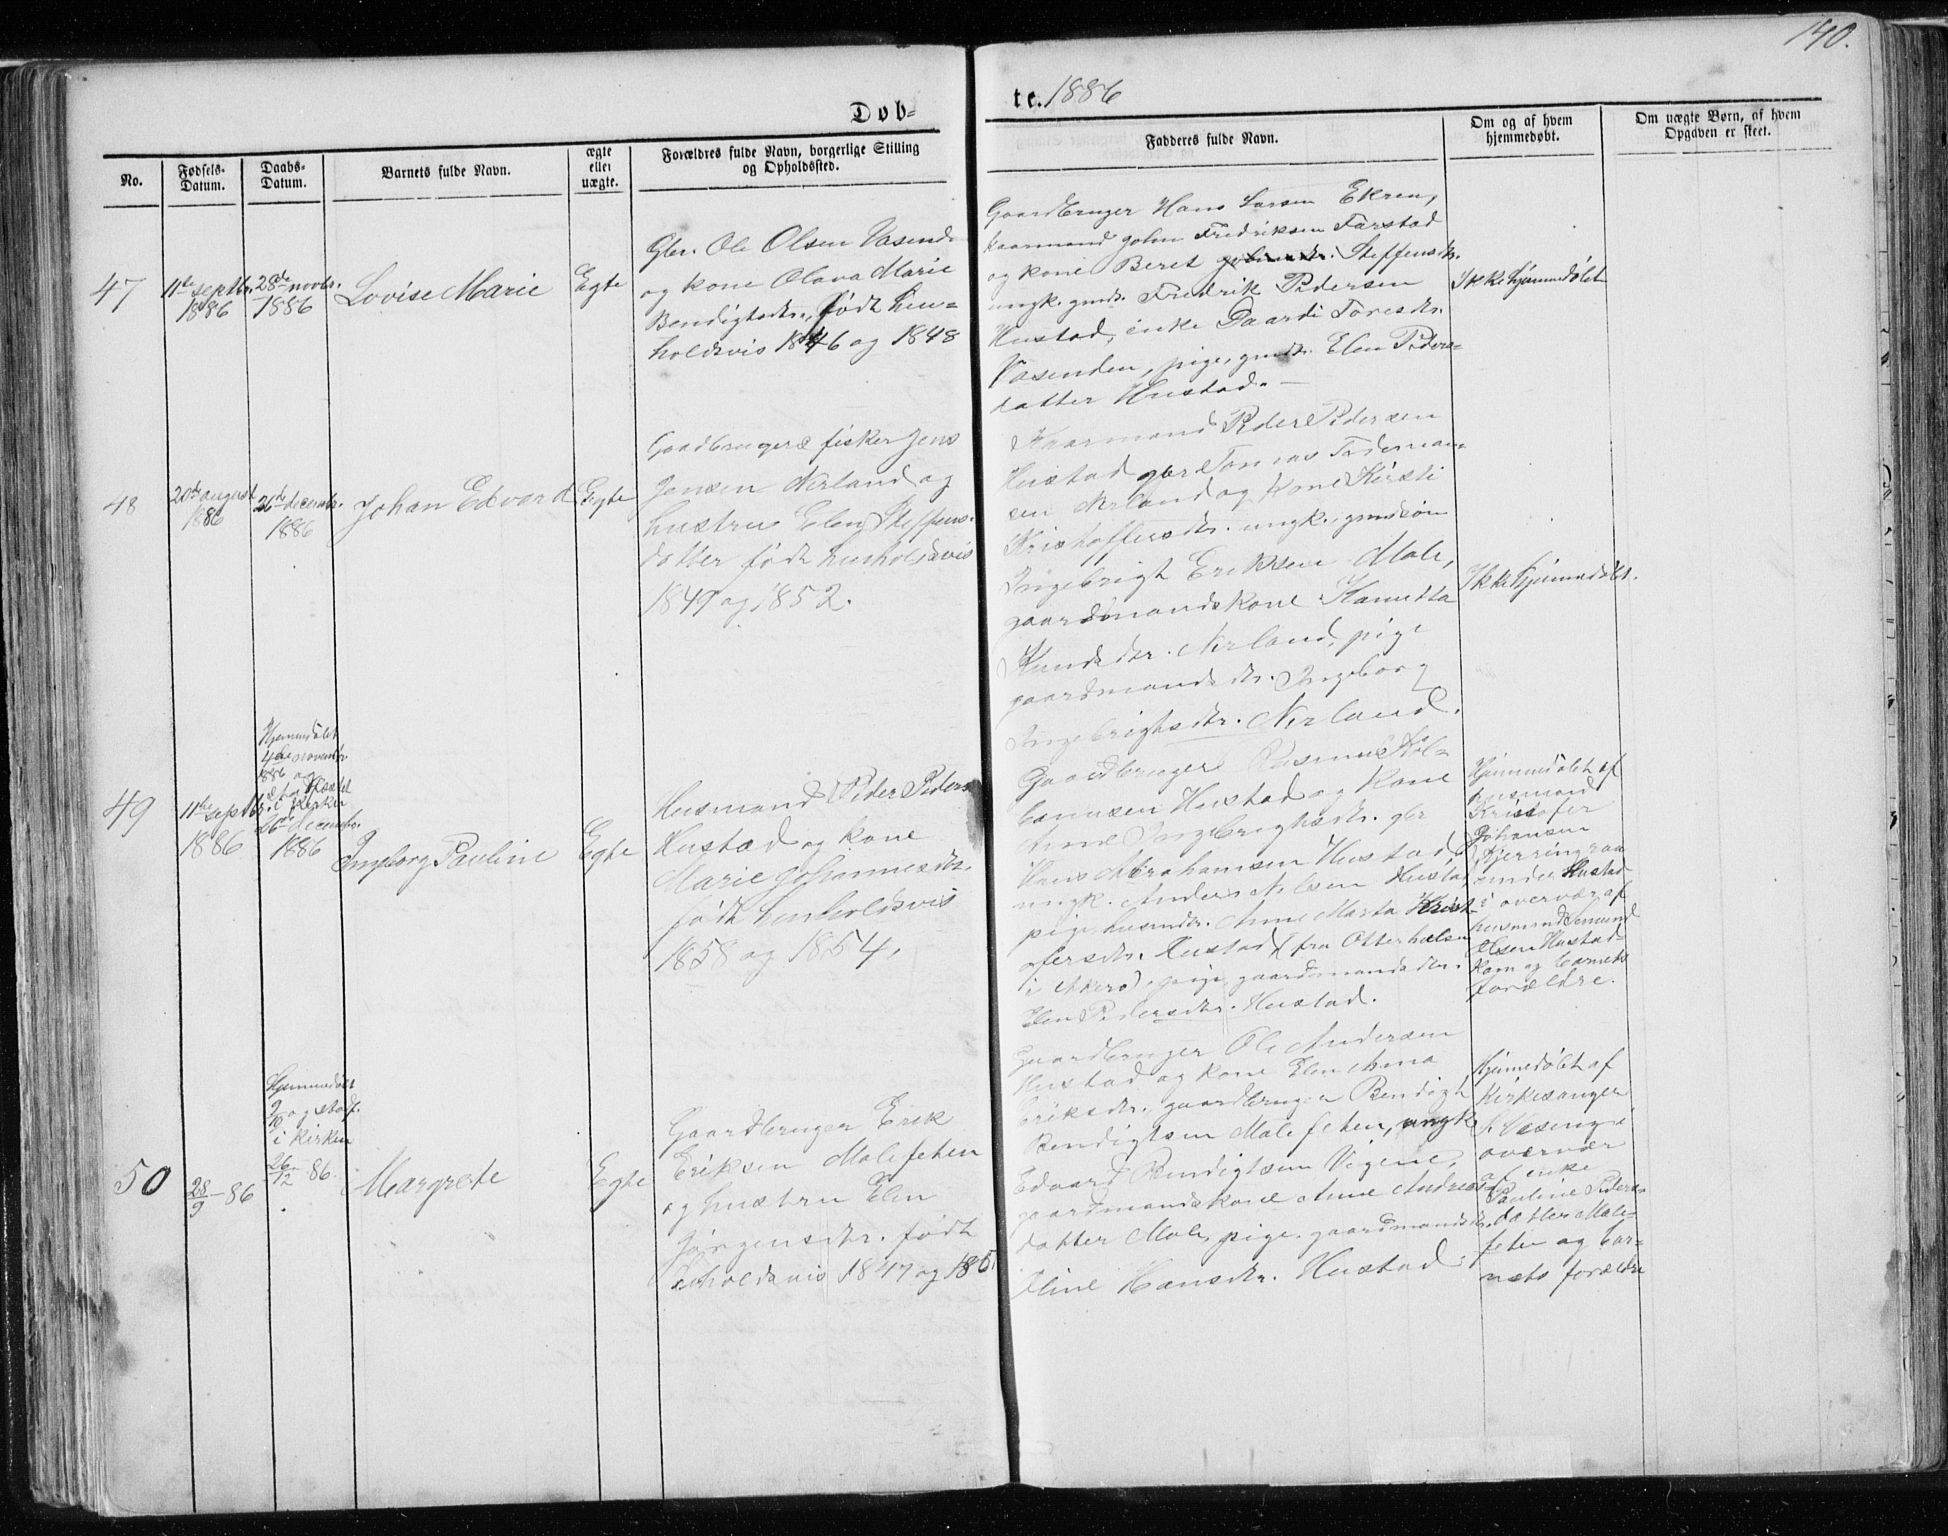 140.
Døb=
te. 1886
No.
Fødsels-
Datum.
Daabs-
Datum.
Barnets fulde Navn.
ægte
eller
uægte.
Forældres fulde Navn, borgerlige Stilling
og Opholdssted.
Fadderes fulde Navn.
Om og af hvem
hjemmedøbt.
Om uægte Børn, af hvem
Opgaven er skeet.
47
11te septbr.
1886
28de novbr.
1886
Lovise Marie
Egte
Gbr. Ole Olsen Vasend
og kone Olava Marie
Bendigtsdtr., født hen=
holdsvis 1846 og 1848
Gaardbruger Hans Larsen Ekren,
kaarmand John Fredriksen Farstad
og kone Beret Steffensdtr.
ungk. gmds. Fredrik Pedersen
Hustad, enke Gaardi Toresdtr.
Vasenden, pige, gmdtr. Elen Peders=
datter Hustad. —
Ikke hjemmedøbt
48
20de august
1886
26de decembr.
1886
Johan Edvard
Egte
Gaadbruger & fisker Jens
Jensen Nerland og
hustru Elen Steffens-
datter født henholdsvis
1849 og 1852.
Kaarmand Peder Pedersen
Hustad gbr Tomas Tideman=
sen Nerland og kone Kirsti
Kristoffersdtr. ungk., gmdsøn
Ingebrigt Eriksen Male,
gaardmandskone Kanutta
Knudsdtr. Nerland, pige
gaardmandsdtr. Ingeborg
Ingebrigtsdtr. Nerland.
Ikke hjemmedøbt.
49
11te septbr.
1886
Hjemmedøbt
4de novembr.
1886 og
stadfæstet
i kirken
26de decembr.
1886
Ingborg Pauline
Egte
Husmand Peder Peders.
Hustad og kone
Marie Johannesdtr.
født henholdsvis
1858 og 1854.
Gaardbruger Rasmus Kol=
bænsen Hustad og kone
Anne Ingebrigtsdtr. gbr
Hans Abrahamsen Hustad
ungk. Anders Nilsen Hustad
pige, husmdtr. Anne Marta Krist-
ofersdtr. Hustad (fra Otterholsen
i Akerø), pige, gaardsmandsdtr.
Elen Pedersdtr. Hustad.
Hjemmedøbt af
husmand
Kristofer
Johansen
Kjerringraa
under Hustad
i overvær af
husmand Simund
Olsen Hustad-
kam og barnets
forældre.
50
28/9 – 86
Hjemmedøbt
9/10 og stadf.
i kirken
26/12 86.
Margrete
Egte
Gaardbruger Erik
Eriksen Malefeten
og hustru Elen
Jørgensdtr. født
henholdsvis 1847 og 185
Gaardbruger Ole Andersen
Hustad og kone Elen Anna
Eriksdtr., gaardbruger Bendigt
Bendigtsen Malefeten, ungk
Edvard Bendigtsen Vigene,
gaardmandskone Anne Andreas-
datter Male, pige, gaardmandsdtr.
Eline Hansdtr. Hustad.
Hjemmedøbt af
Kirkesanger
J. Vaseng i
overvær
af enke
Pauline Peders-
datter Male-
feten og bar=
nets forældre